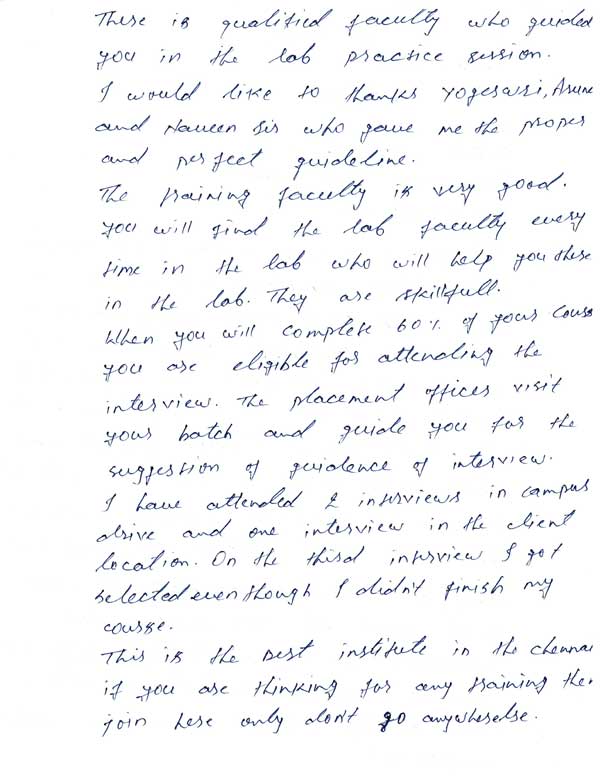 There is qualified faculty who guided
you in the lab practice session.
I would like to thanks Yogeswri, Arun
and Naveen sir who gave me the proper
and perfect guideline.
The training faculty is very good.
You will find the lab faculty every
time in the lab who will help you there
in the lab. They are skillfull.
When you will complete 60% of your cours
you are eligible for attending the
interview. The placement officer visit
your batch and guide you for the
suggestion of guidence of interview.
I have attended 2 interviews in campus
drive and one interview in the client
location. On the third interview I got
selected even though I didn't finish my
course.
This is the best institute in the chennai
if you are thinking for any training the
join here only don't go anywhereelse.